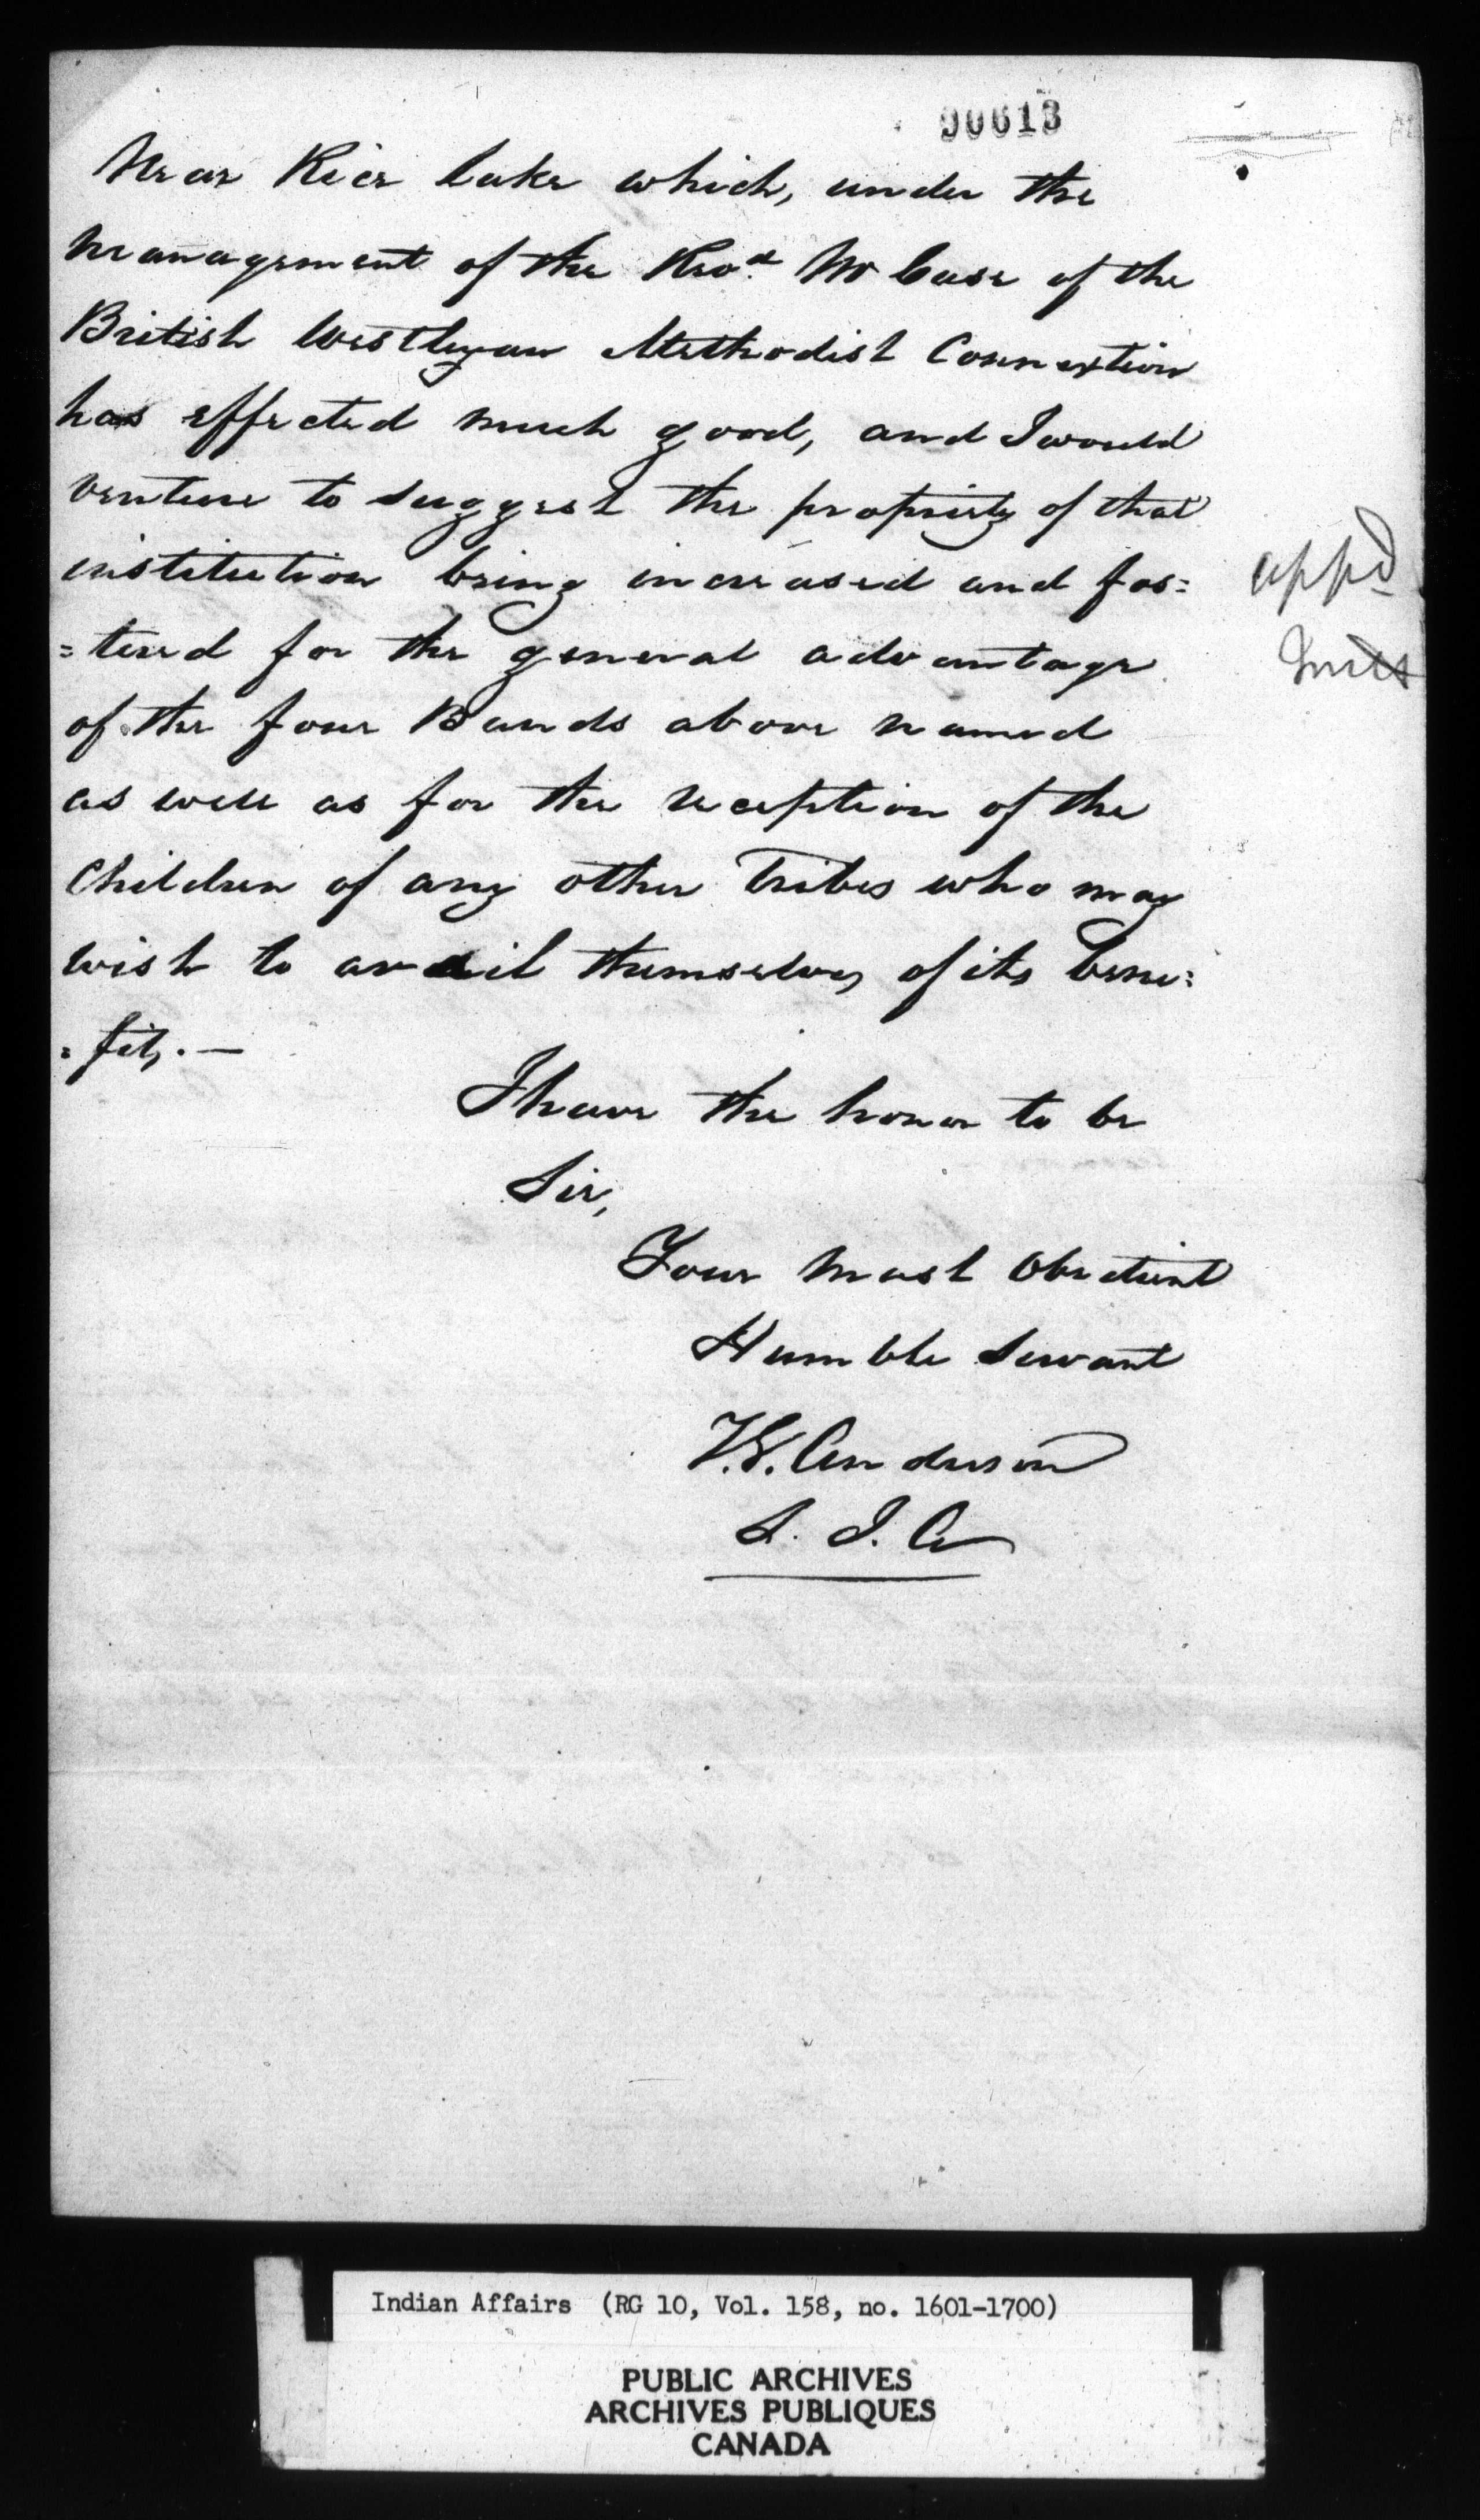 90613
Near Rice Lake which, under the
management of the Revd. Mr Case of the
British Westleyan Methodist Connextion
has effected much good, and I would
venture to suggest the propriety of that
institution being increased and fos=
=tered for the general advantage
of the four Bands above named
as well as for the reception of the
Children of any other Tribes who may
wish to avail themselves of its bene=
=fits.—
appd
I have the honor to be
Sir,
Your most Obedient
Humble Servant
T.G. Anderson
S. I. A
Indian Affairs (RG 10, Vol. 158, no. 1601-1700)
PUBLIC ARCHIVES
ARCHIVES PUBLIQUES
CANADA